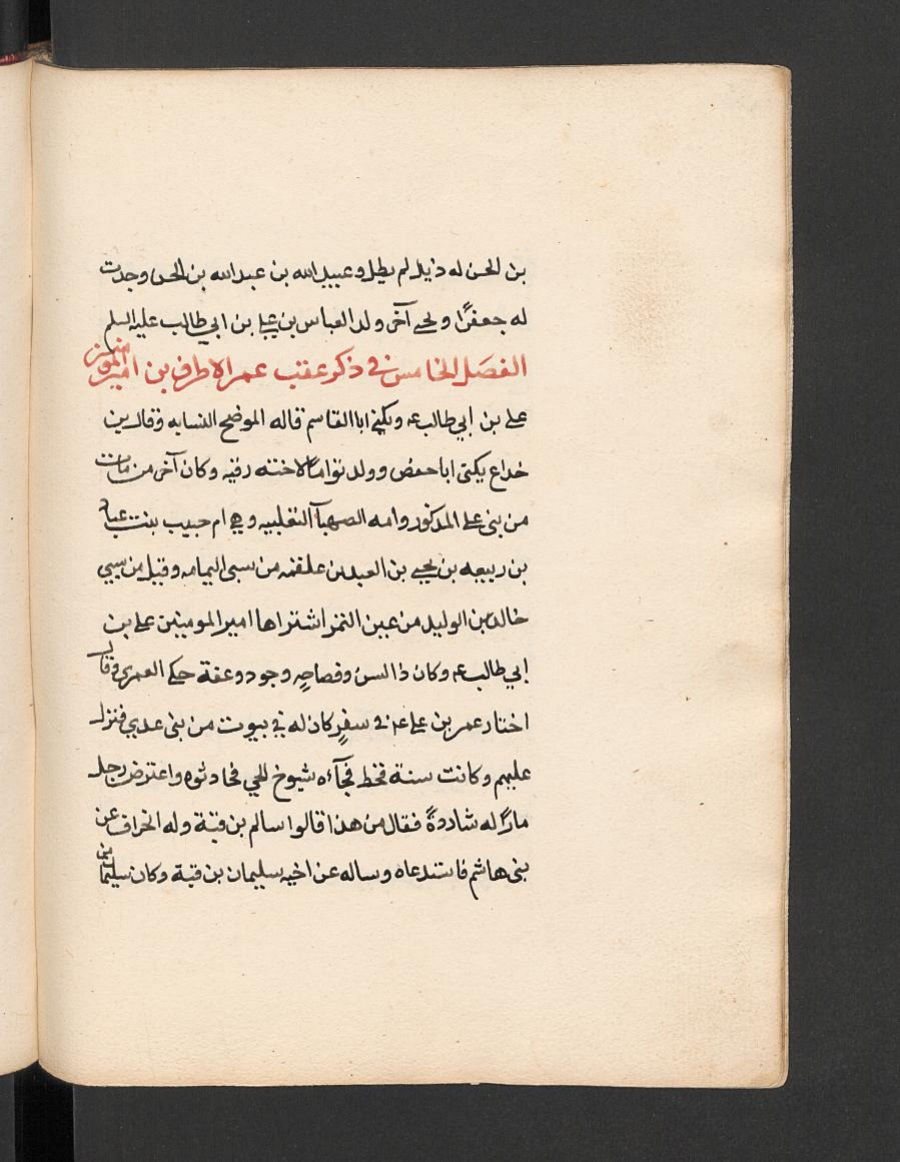 بن الحسن له ذيل لم يطل وعبيد الله بن عبد الله بن الحسن وجدت
له جعفرًا ولحي آخر ولد العباس بن علي بن ابي طالب عليه السلم
الفصل الخامس في ذكر عقب عمر الاطرف بن امير المومنين
علي بن ابي طالب عم ويكنى ابا القاسم قاله الموضح النسابه وقال بن
خداع يكنى ابا حفص وولد توامًا لاخته رقيه وكان آخر من مات
من بنى علي المذكور وامه الصهبآ الثعلبيه وهي ام حبيب بنت عباد
بن ربيعه بن يحيى بن العبد بن علقمه من سبى اليمامه وقيل من سبي
خالد بن الوليد من عين التمر اشتراها امير المومنين علي بن
ابي طالب عم وكان ذا لسن وفصاحه وجود وعفة حكى العمري وقال
اختار عمر بن علي عم في سفرٍ كان له في بيوت من بنى عدي فنزل
عليهم وكانت سنة قحط فجآءه شيوخ الحي فحادثوه واعترض رجل
مارًا له شاردةً فقال من هذا قالوا سالم بن قتة وله انحراف عن
بنى هاشم فاستدعاه وساله عن اخيه سليمان بن قتة وكان سليمان